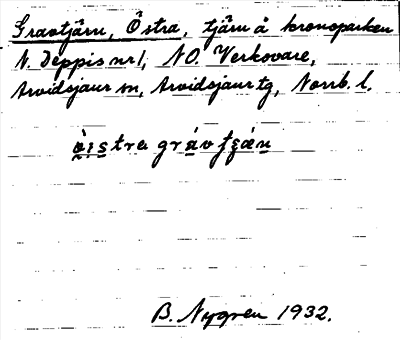 Gravtjärn, Östra, tjärn å kronoparken
N. Deppis nr 1, NO. Verkovare,
Arvidsjaur sn, Arvidsjaur tg, Norrb. l.
B. Nygren 1932.